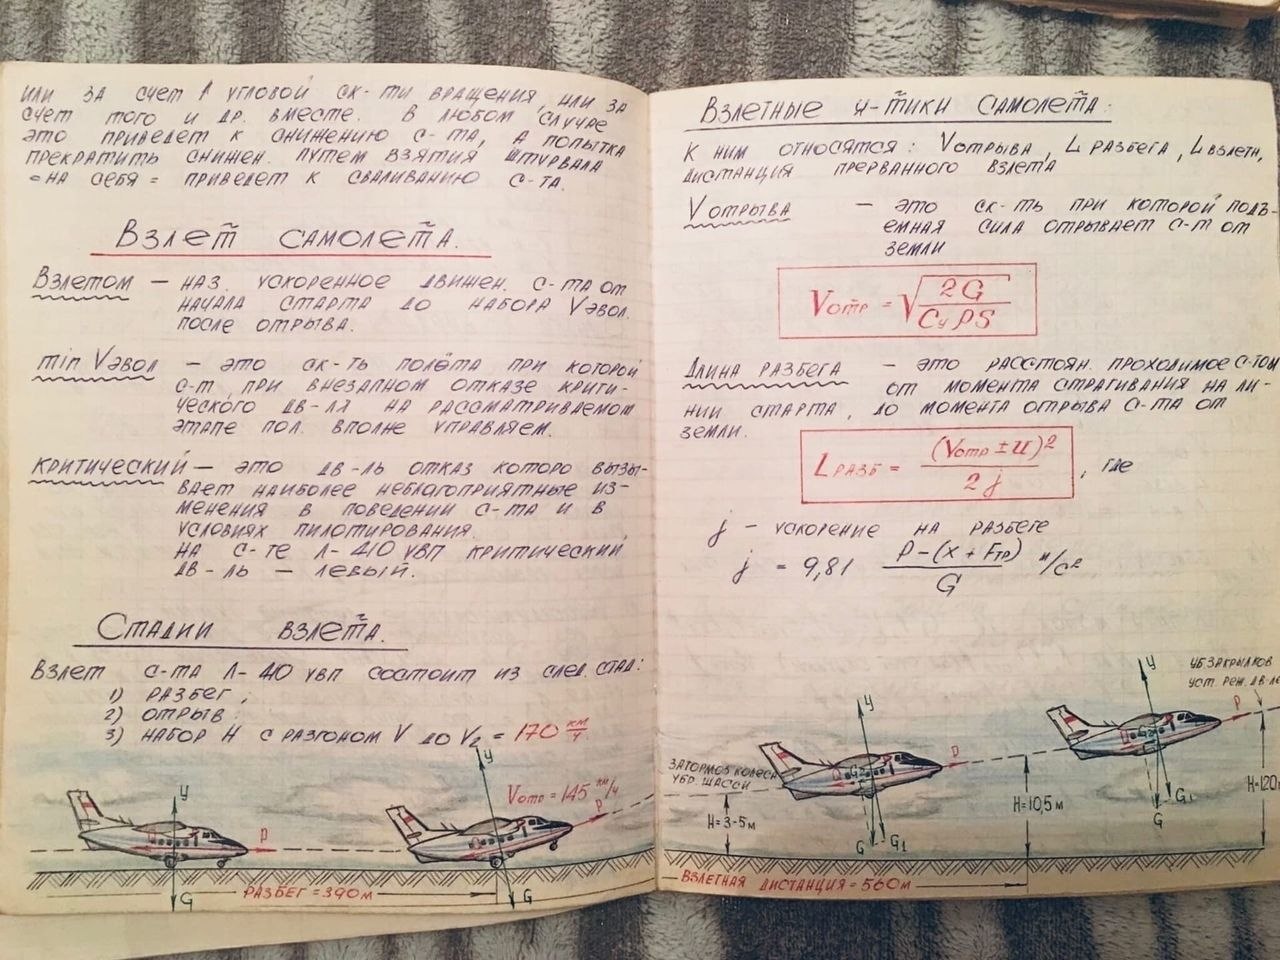 или за счет ↑ угловой ск-ти вращения, или за
счет того и др. вместе. В любом случае
это приведет к снижению с-та, а попытка
прекратить снижен. путем взятия штурвала
"на себя" приведет к сваливанию с-та.
Взлет самолета.
Взлетом — наз. ускоренное движен. с-та от
начала старта до набора Vэвол.
после отрыва.
min Vэвол — это ск-ть полёта при которой
с-т при внезапном отказе крити-
ческого дв-ля на рассматриваемом
этапе пол. вполне управляем.
Критический — это дв-ль отказ которо вызы-
вает наиболее неблагоприятные из-
менения в поведении с-та и в
условиях пилотирования.
На с-те Л-410 увп критический
дв-ль — левый.
Стадии взлета.
Взлет с-та Л-410 увп состоит из след. стад:
1) разбег;
2) отрыв;
3) набор H с разгоном V до V2 = 170 км/ч.
y
P
G
Разбег = 390 м
y
Vотр = 145 км/ч
P
G
Взлетные х-тики самолета:
К ним относятся: Vотрыва, L разбега, L взлетн,
дистанция прерванного взлета
Vотрыва — это ск-ть при которой подъ-
емная сила отрывает с-т от
земли
Vотр = √2G/CyρS
Длина разбега — это расстоян. проходимое с-том
от момента страгивания на ли-
нии старта, до момента отрыва с-та от
земли.
Lразб = (Vотр ± U)²/2j, где
j — ускорение на разбеге
j = 9,81 P-(x+Fтр)/G м/с²
Затормоз колеса
убр. шасси
H=3-5м
y
P
G2
G
G1
H=10,5м
y
P
G2
G1
G
уб закрылков
уст. реж. дв-ле
H=120
Взлетная дистанция = 560м